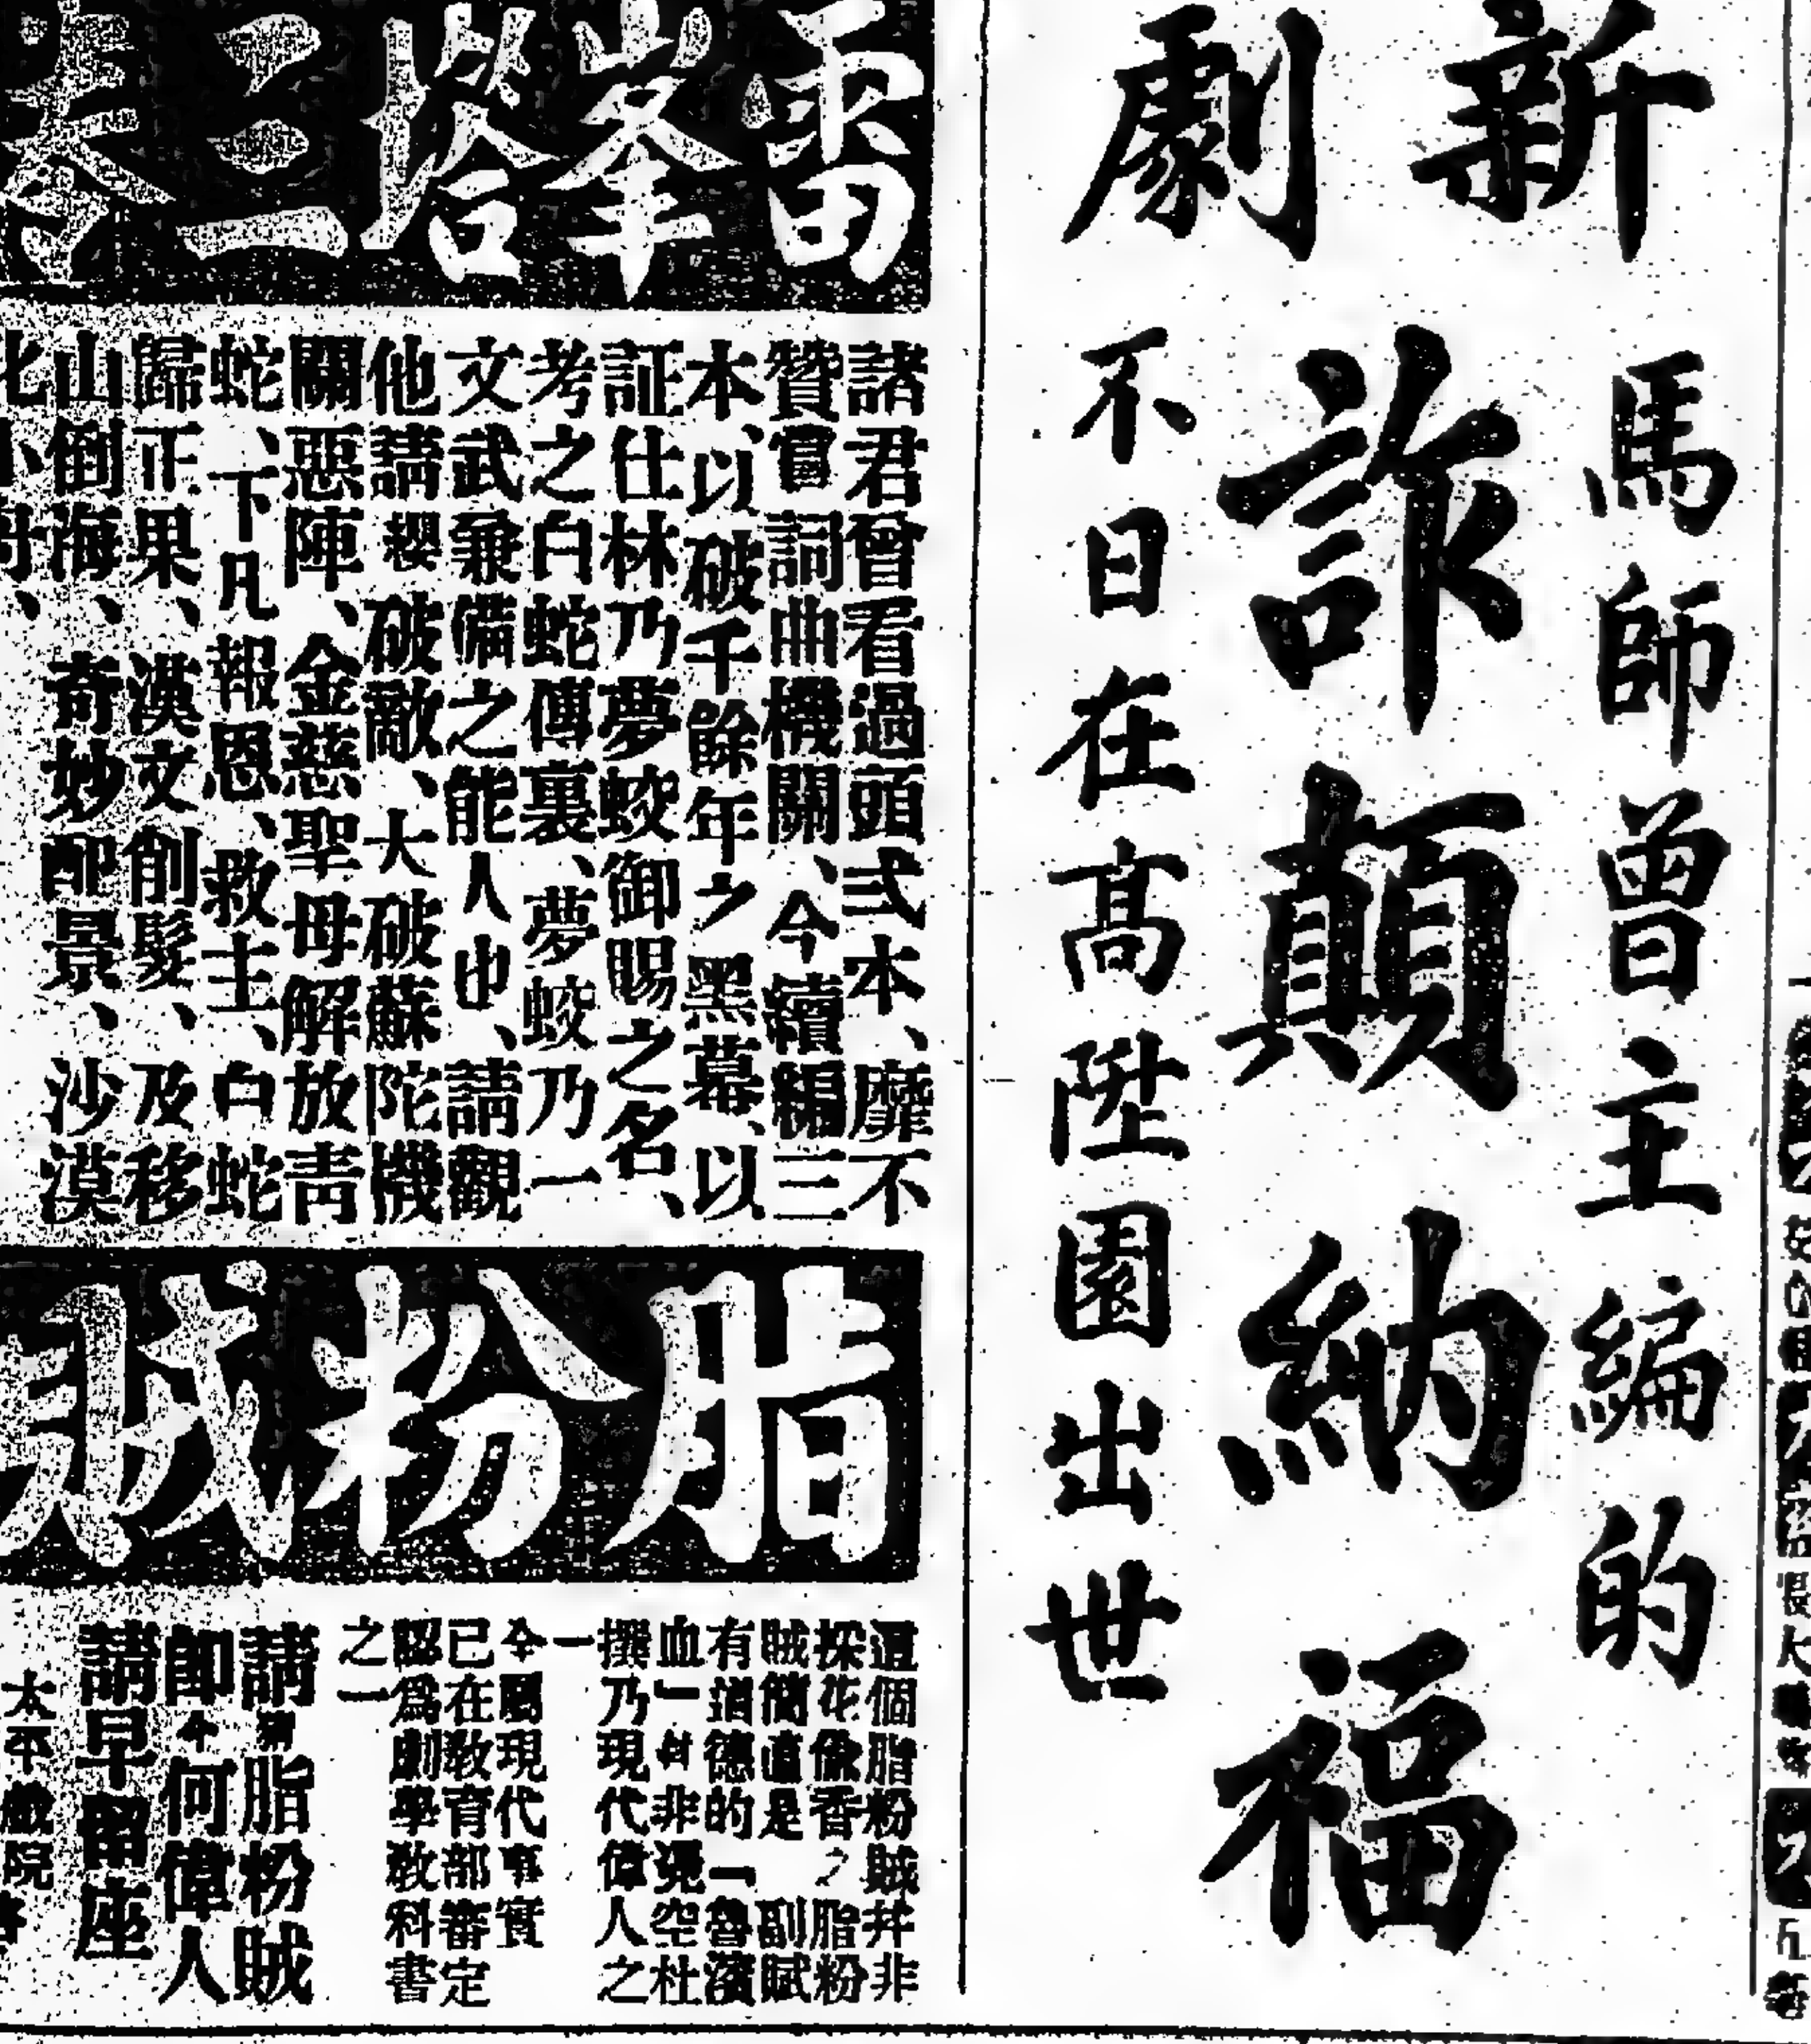 新劇
馬師曾主編的
詐顛納福
不日在高陞園出世
雷峯塔三本
諸君曾看過頭弍本、靡不
贊嘗詞曲機關、今續編三
本、以破千餘年之黑幕、以
証仕林乃夢蛟御賜之名、
考之白蛇傳裏、夢蛟乃一
文武兼備之能人也、請觀
他請纓破敵、大破蘇陀機
關惡陣、金慈聖母解放青
蛇、下凡報恩、救主、白蛇
歸正果、漢文削髮、及移
山倒海、奇妙配景、沙漠
脂粉賊
這個脂粉賊并非
採花偷香之脂粉
賊簡直是 副賦
有道德的「魯濱
血」 非憑空杜
撰乃現代偉人之
一
全屬現代事實
已在教育部審定
認為劇學教科書
之一
請猜脂粉賊
即今何偉人
請早留座
太平戲院